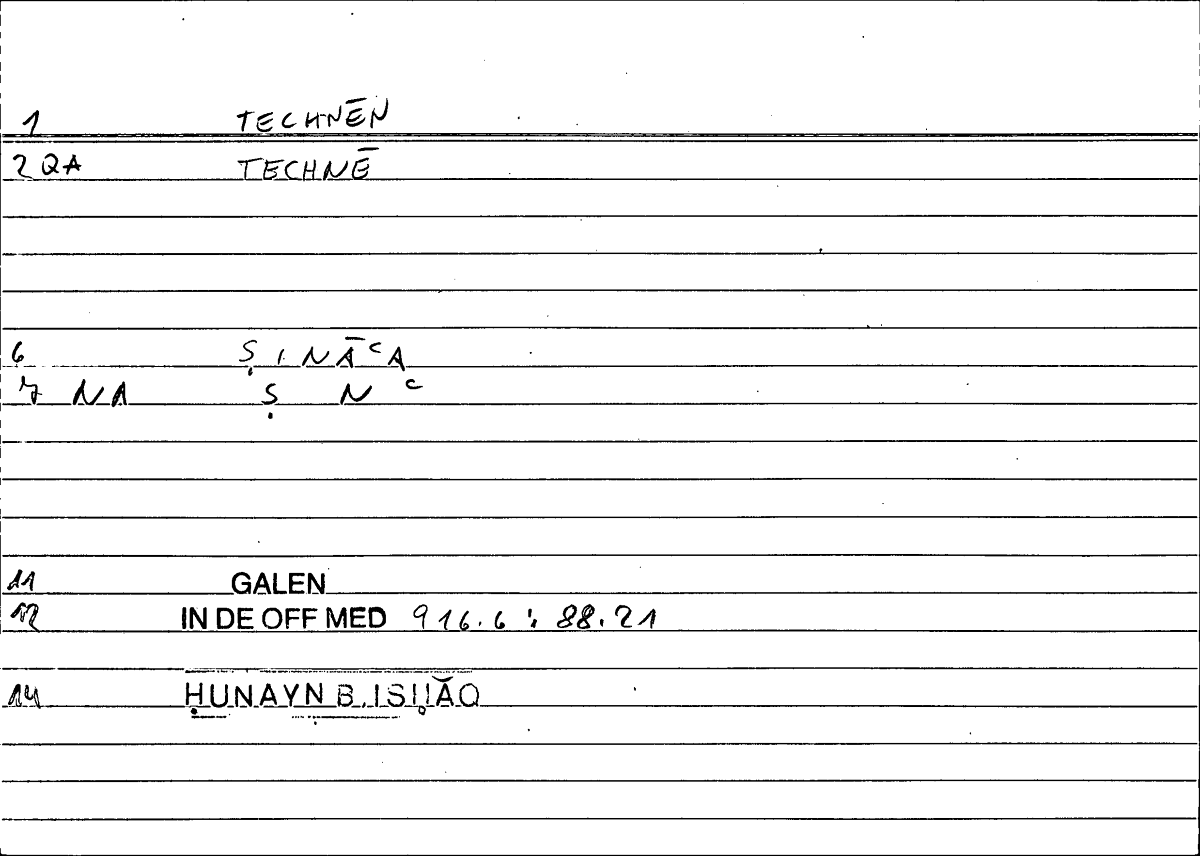 1 TECHNĒN
2 QA TECHNĒ
6 ṢINĀʿA
7 NA Ṣ N ʿ
11 GALEN
12 IN DE OFF MED 916.6 : 88.21
14 ḤUNAYN B. ISḤĀQ